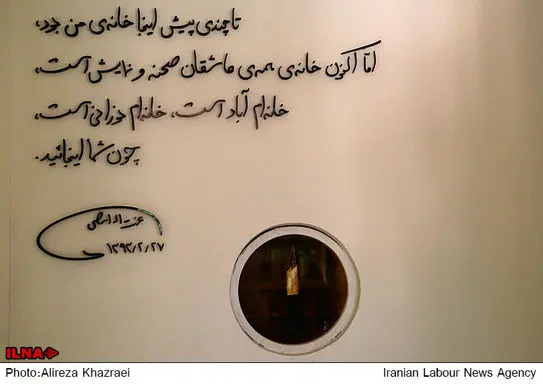 تا چندی پیش اینجا خانه‌ی من بود،
امّا اکنون خانه‌ی همه‌ی عاشقان صحنه و نمایش است،
خانه‌ام آباد است، خانه‌ام نورانی است،
چون شما اینجائید.
عزت‌الله انتظامی
۱۳۹۳/۲/۲۷
ILNA
Photo:Alireza Khazraei
Iranian Labour News Agency